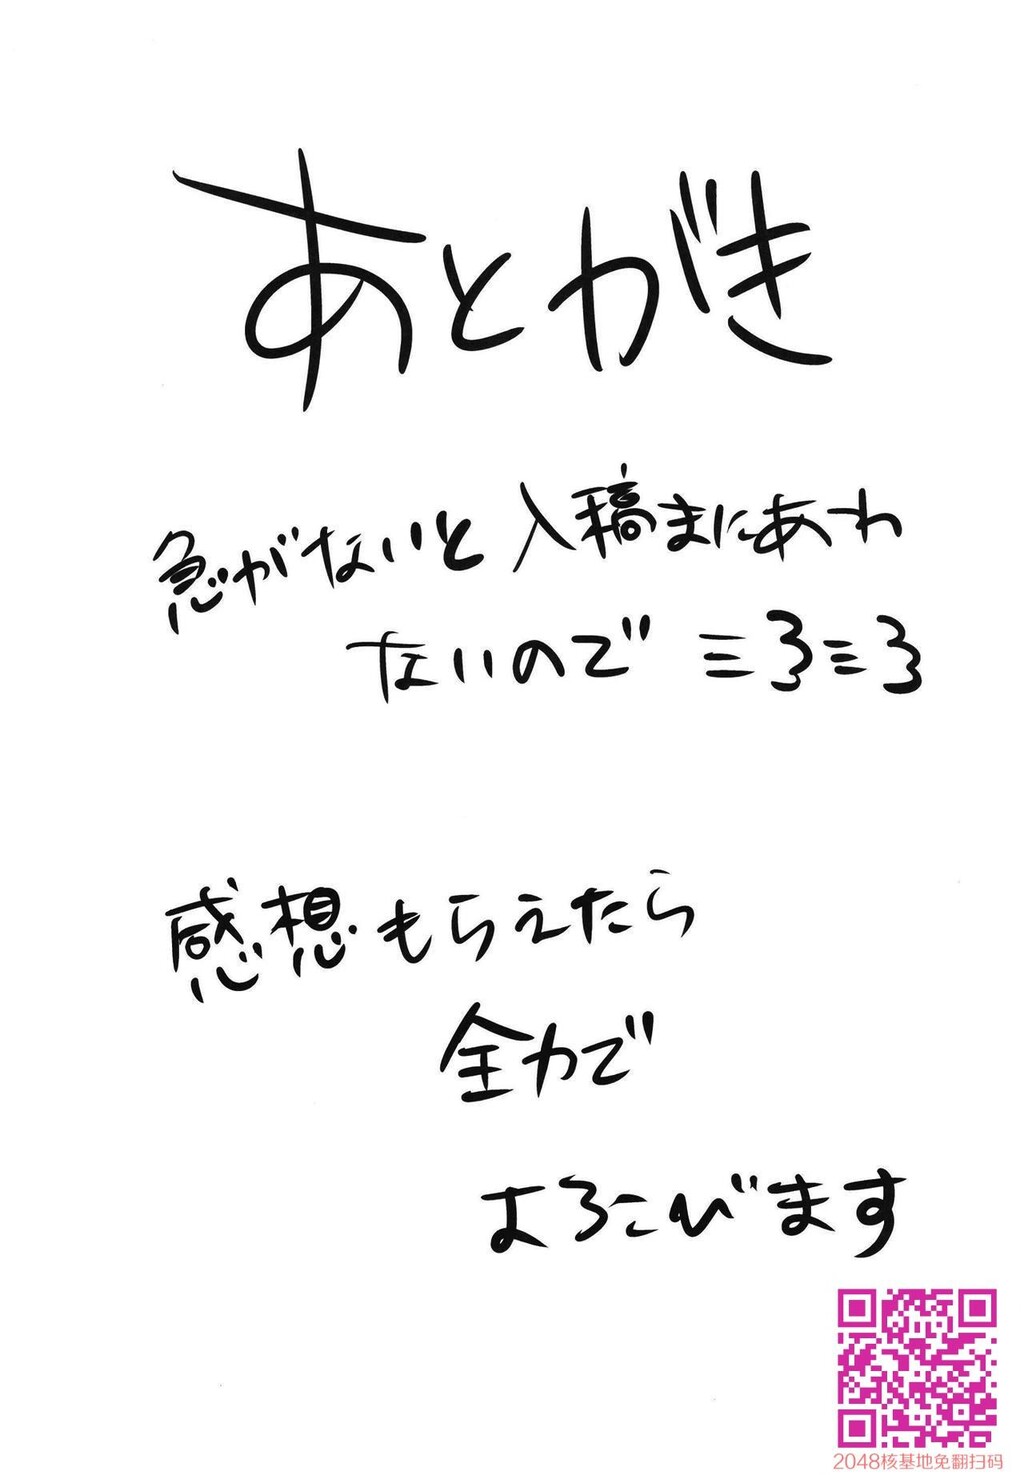 あとがき
急がないと入稿まにあわ
ないので ミ3ミ3
感想もらえたら
全力で
よろこびます
2048核基地免翻扫码